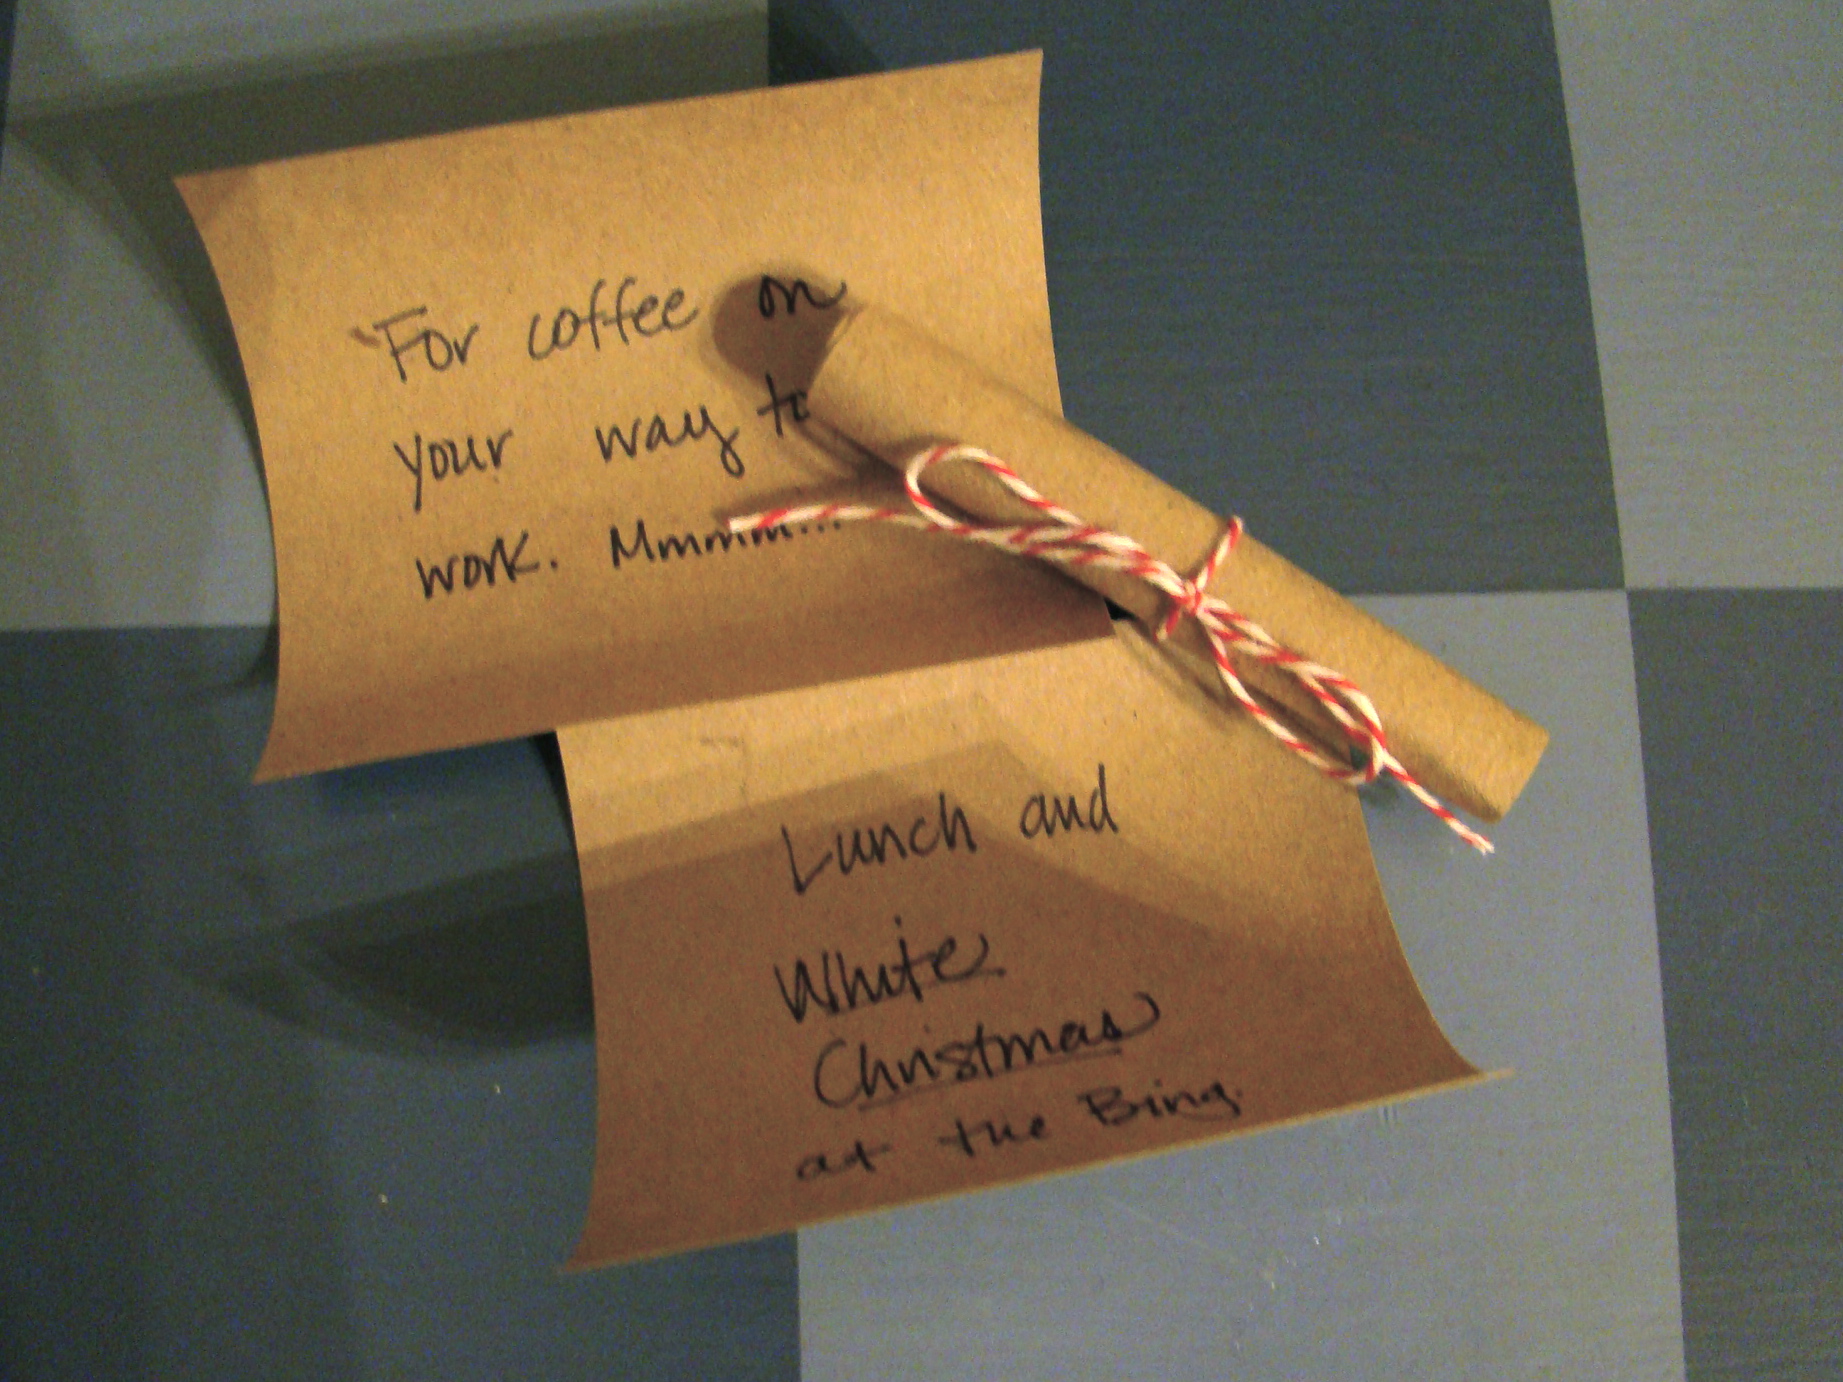 For coffee on
your way to
work. Mmmmm...
Lunch and
White
Christmas
at the Bing.